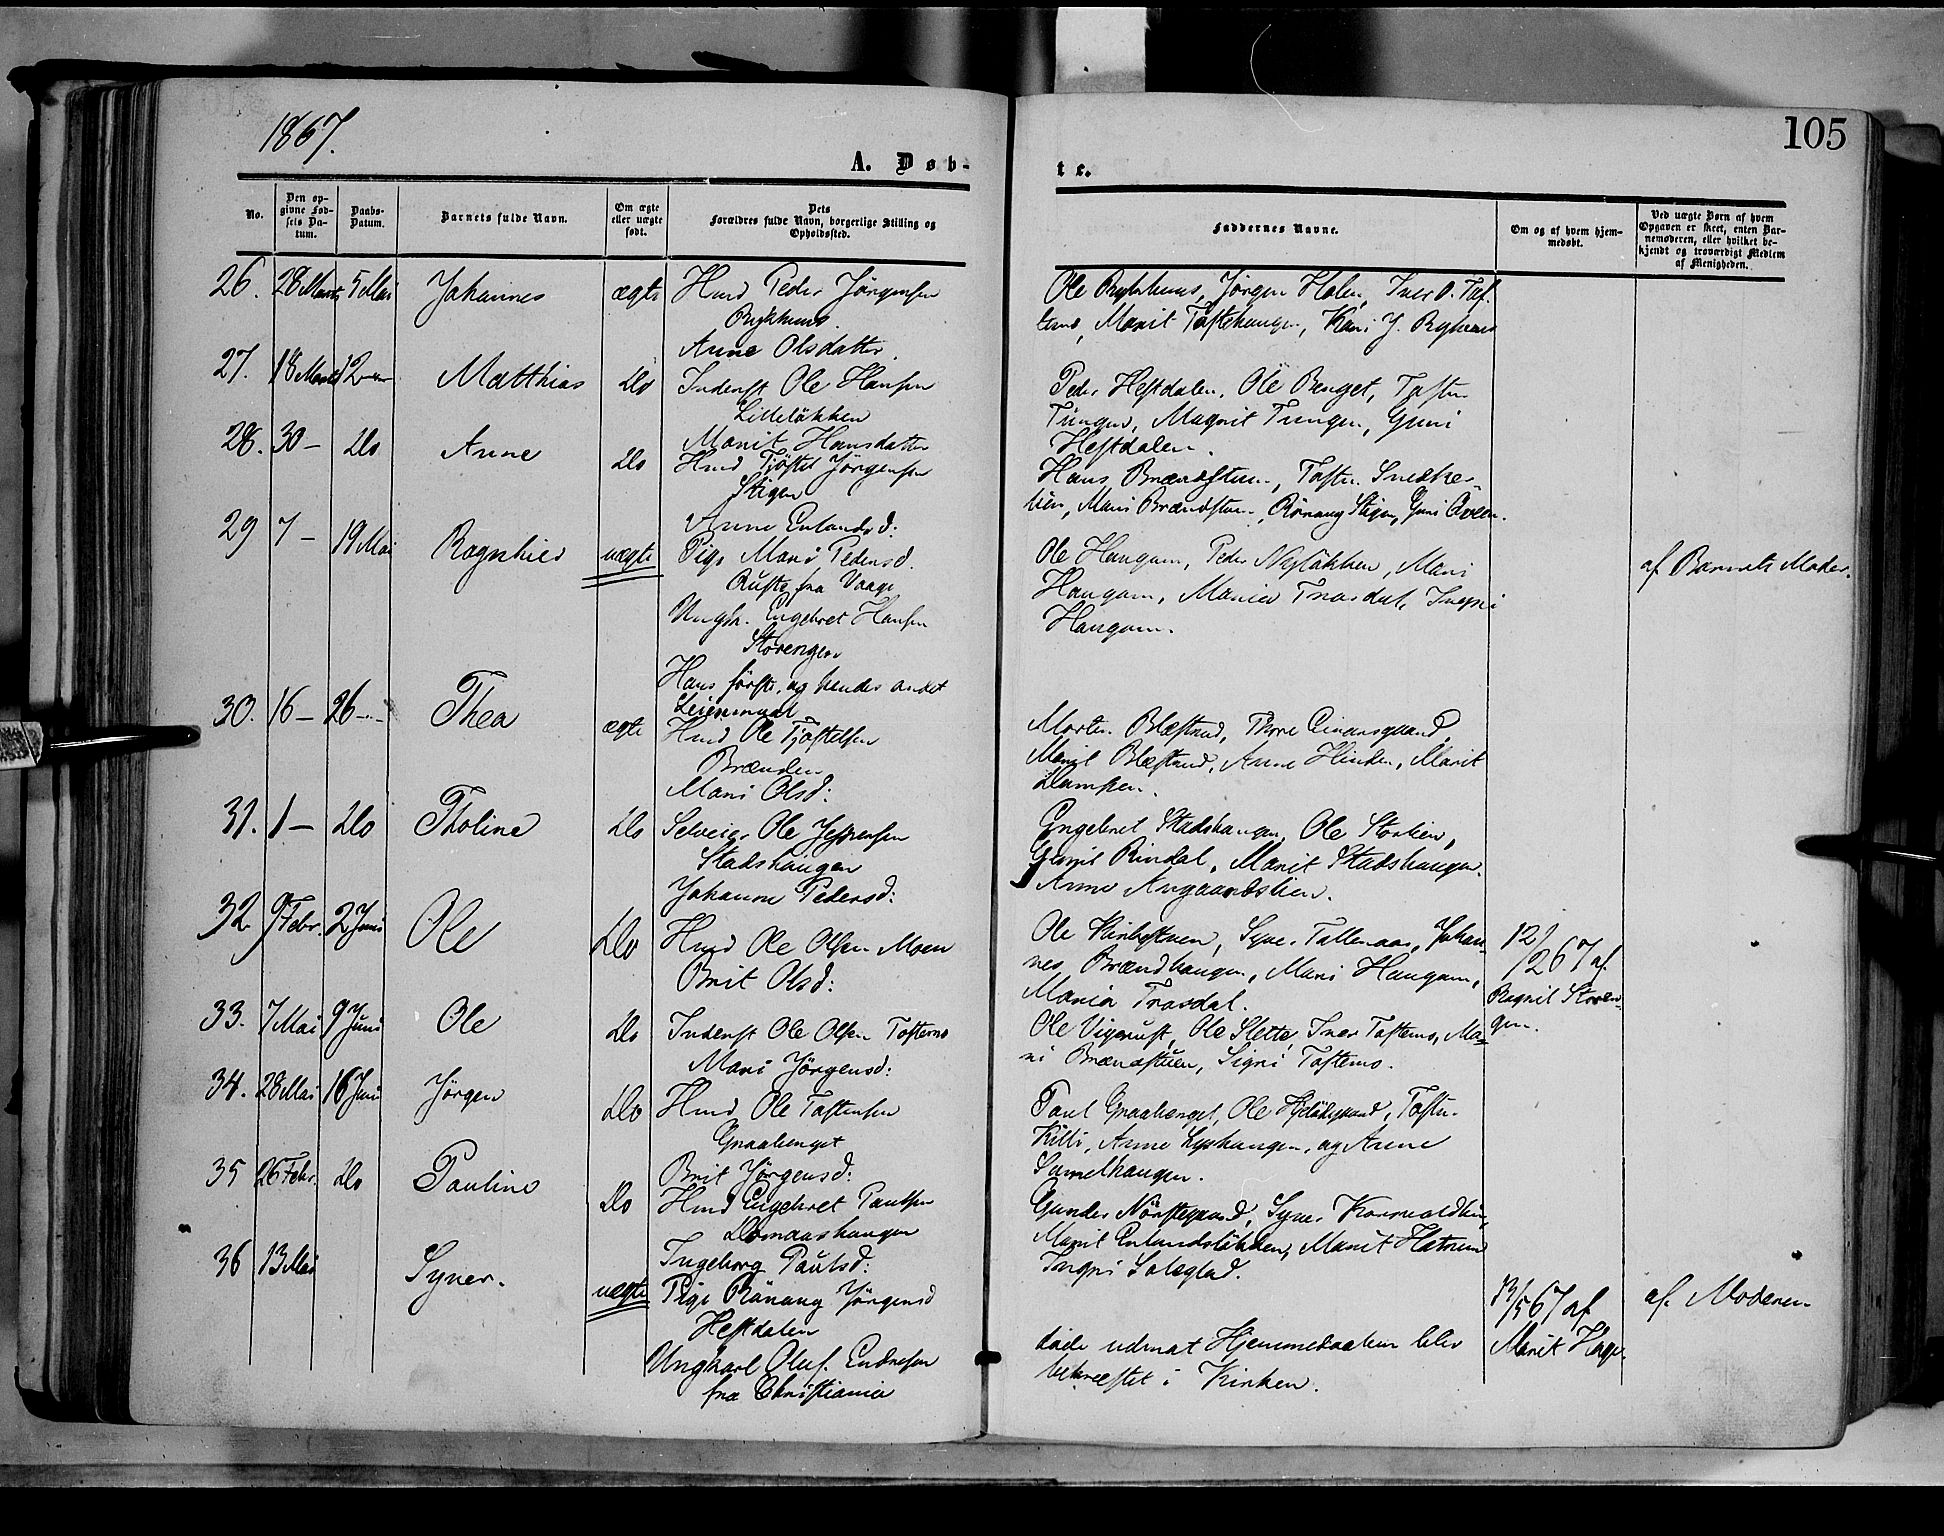 1867.
105
A. Døb-
te.
No.
Den op-
givne Fød-
sels Da-
tum.
Daabs-
Datum.
Barnets fulde Navn.
Om ægte
eller uægte
født.
Dets
Forældres fulde Navn, borgerlige Stilling og
Opholdssted.
Faddernes Navne.
Om og af hvem hjem-
medøbt.
Ved uægte Børn af hvem
Opgaven er skeet, enten Bar-
nemoderen, eller hvilket be-
kjendt og troværdigt Medlem
af Menigheden.
26. 28 Marts 5 Mai Johannes ægte Hmd Peder Jörgensen
Anne Olsdatter.
Jörgen Holen, Iver O. Tof-
Marit Toftehaugen, Kari J.
27. 18 Marts 12 Matthias Do Inderst Ole Hansen
Lilleløkken
Marit Hansdatter
Peder Heftdalen, Ole Benget, Tosten
Tungen, Magnit Tungen, Guni
Heftdalen.
28. 30 — Do Anne Do Hmd Tjöstel Jörgensen
Stigen
Anne Erlandsd:
Hans Brændstuen, Tosten Snedker-
lien, Mari Brændstuen, Rönaug Stigen, Guni
29 7 — 19 Mai Ragnhild uægte Pige Mari Pedersd.
fra Vaage
Ungk. Engebret Hansen
Storengen
Hans förste, og hendes andet
Leiermaal
Ole Haugom, Peder Nyløkken, Mari
Haugom, Maria Trosdal, Ingri
Haugom.
af Barnets Moder.
30. 16 — 26 — Thea ægte Hmd Ole Tjöstelsen
Brænden
Mari Olsd:
Morten Blæstad, Thore
Marit Blæstad, Anne Marit
Dampen.
31. 1 — Do Tholine Do Selveier Ole Jespersen
Stadshaugen
Johanne Pedersd:
Engebret Stadshaugen, Ole Storlien,
Rindal, Marit Stadshaugen,
Anne
32. 9 Febr. 2 Juni Ole Do Hmd Ole Olsen Moen
Brit Olsd:
Ole Kirkestuen, Syver Talleraas, Johan-
nes Brændhaugen, Mari Haugom,
Maria Trosdal.
12/
/2 67 af
Ragnil Storen-
gen.
33. 7 Mai 9 Juni Ole Do Inderst Ole Olsen Toftemo
Mari Jörgensd:
Ole Vigerust, Ole Slette, Iver Toftemo, Ma-
ri Brændstuen, Signi Toftemo.
34. 28 Mai 16 Juni Jörgen Do Hmd Ole Tostensen
Graabenget
Brit Jörgensd:
Paul Graabenget, Ole Tosten
Killi, Anne og Anne
35 26 Febr. Do Pauline Do Hmd Engebret Paulsen
Domaashaugen
Ingeborg Paulsd:
Gunder Nörstegaard, Syver
Marit Erlandsløkken, Marit Hatrem
Ingri Soległad.
36 13 Mai Syver. uægte Pige Rönaug Jörgensd
Heftdalen
Ungkarl Oluf Endresen
fra Christiania
döde udenat Hjemmedaaben blev
bekræftet i Kirken.
13/5 67 af
Marit Hage.
af Moderen